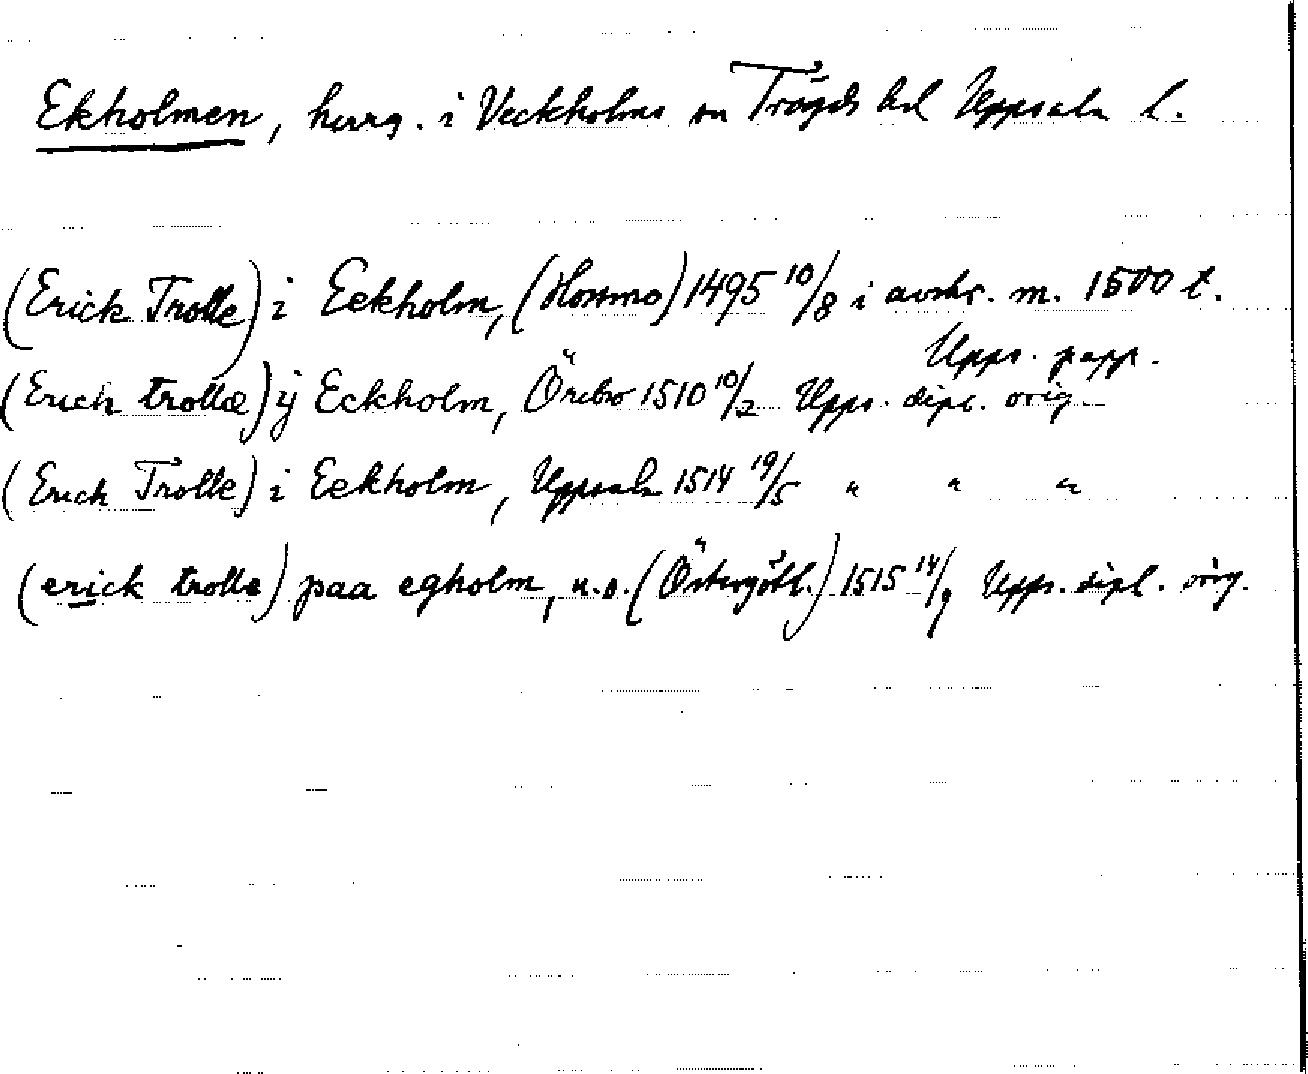 Ekholmen, herrg. i Veckholms sn Trögds hd Uppsala l.
(Erick Trolle) i Eekholm, (Hossmo) 1495 10/8 i avskr. m. 1500 t.
Upps. papp.
(Erich trollæ) ÿ Eckholm, Örebro 1510 10/2 Upps. dipl. orig.
(Erich Trolle) i Eekholm, Uppsala 1514 19/5 " " "
(erick trolle) paa egholm, u.o. (Östergötl.) 1515 14/9 Upps. dipl. orig.